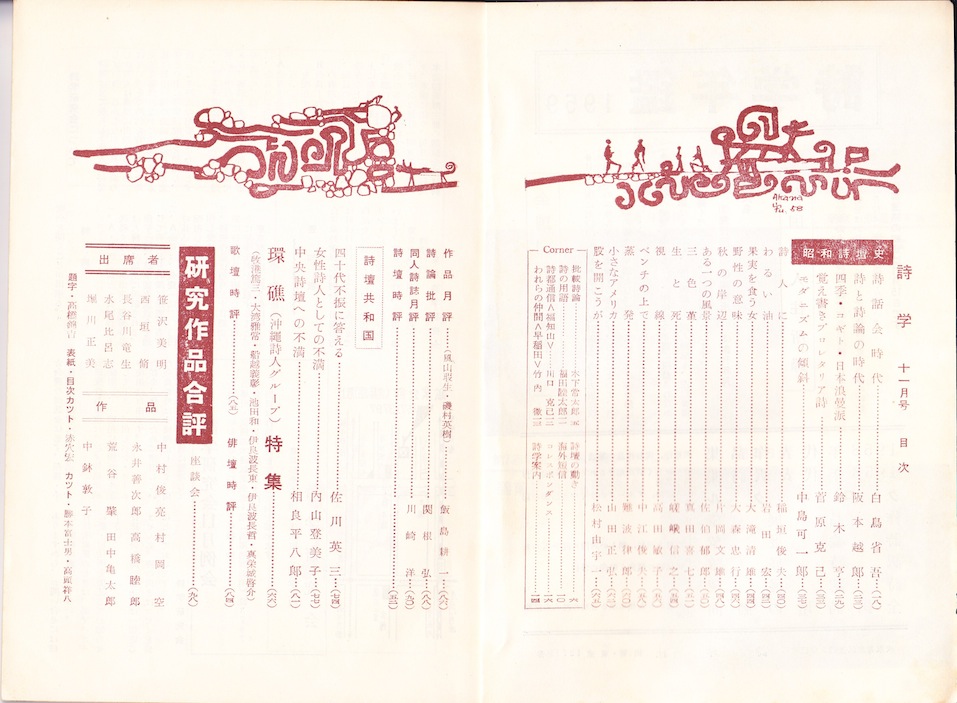 詩学 十一月号 目次
昭和詩壇史
詩話会時代……白鳥省吾…(一八)
詩と詩論の時代……阪本越郎…(二三)
四季・コギト・日本浪曼派……鈴木亨…(二九)
覚え書きプロレタリア詩……菅原克己…(三三)
モダニズムの傾斜……中島可一郎…(三七)
詩人に……稲垣俊夫…
わるい油……岩田宏…
果実を食う女……大滝清雄…
野性の意味……大森忠行…
秋の岸辺……片岡文雄…
ある一つの風景……佐伯郁郎…
三色菫……真田喜七…
生と死……嵯峨信之…
視線……高田敏子…
ベンチの上で……中江俊夫…
蒸発……難波律郎…
小さなアメリカ……山田正弘…
股を開こうが……松村由宇一…
Corner
批載詩論……木下常太郎
詩の用語……福田陸太郎
詩都通信∧福知山∨……川口克己
われらの仲間∧早稲田∨竹内
詩壇の動き
海外短信
コレスポンダンス
詩学案内
Akana
58
作品月評……(風山瑕生・磯村英樹)……飯島耕一…(八六)
詩論批評……関根弘…(八八)
同人詩誌月評……川崎洋…(九〇)
詩壇時評……(五二)
詩壇共和国
四十代不振に答える……佐川英三…(七四)
女性詩人としての不満……内山登美子…(七七)
中央詩壇への不満……相良平八郎…(八一)
環礁(沖縄詩人グループ)特集
・大湾雅常・船越義彰・池田和・伊良波長東・伊良波長哲・真栄城啓介)……(六六)
歌壇時評……(八五)
俳壇時評……(八四)
研究作品合評
座談会……(九八)
出席者
笹沢美明
西垣脩
長谷川竜生
水尾比呂志
堀川正美
作品
中村俊亮 村岡空
永井善次郎 高橋睦郎
荒谷肇 田中亀太郎
中鉢敦子
題字・高橋錦吉 表紙・目次カツト・赤穴宏 カツト・勝本冨士男・高頭祥八